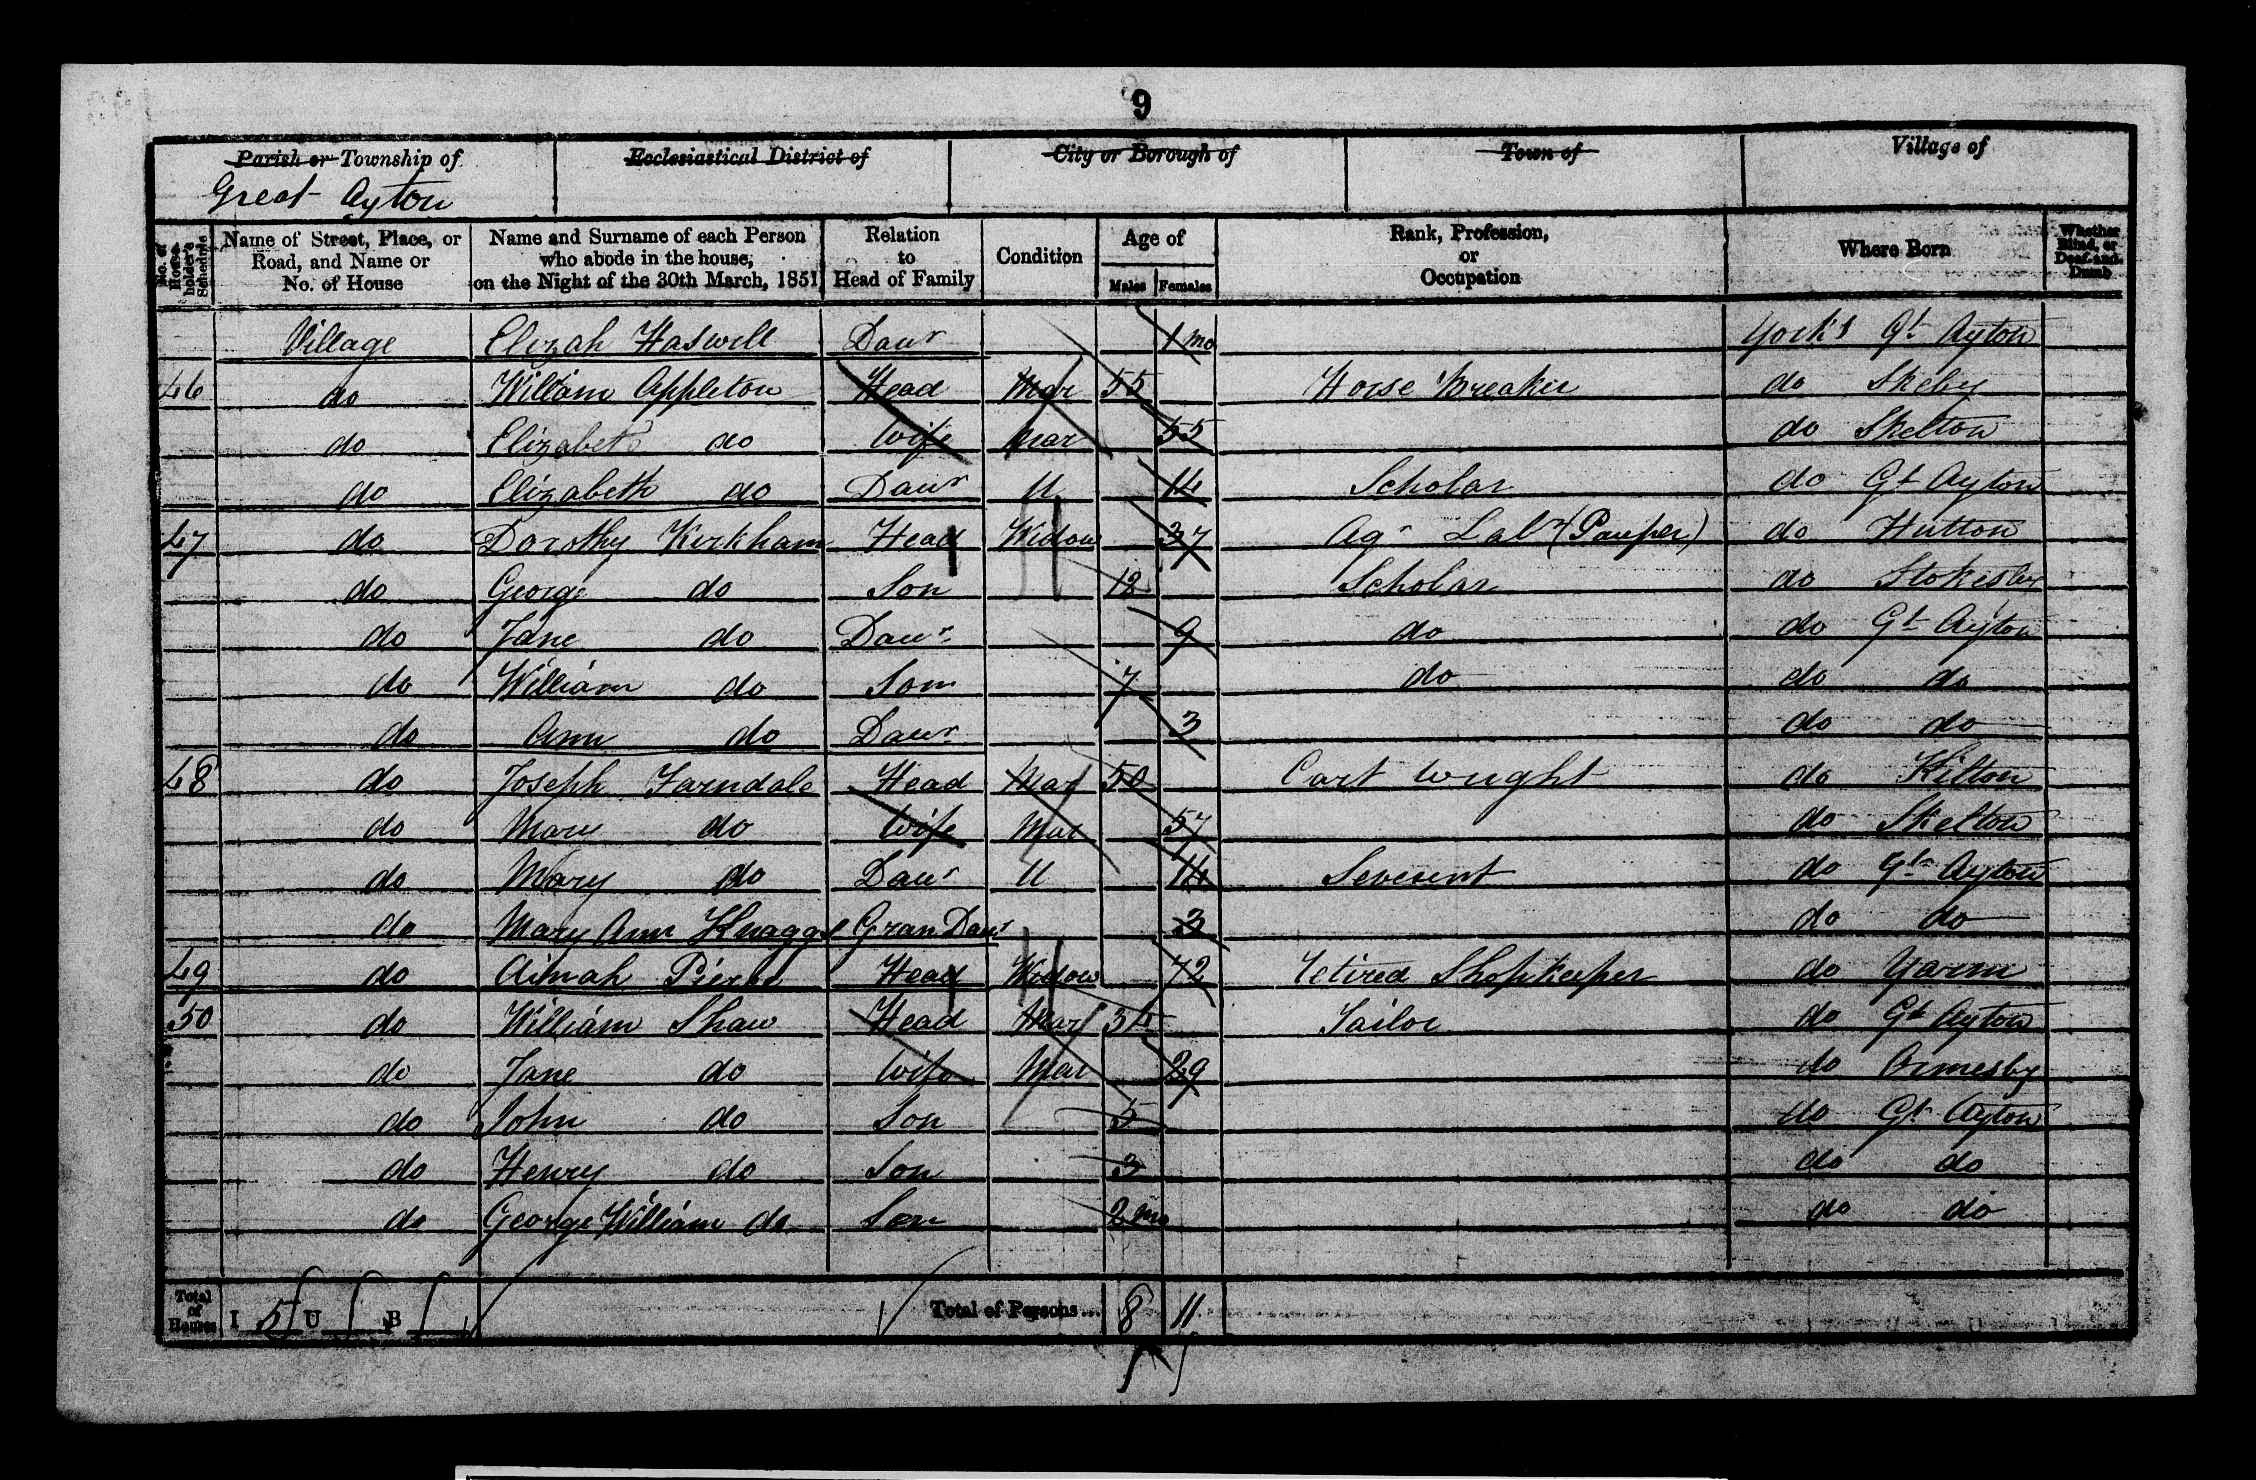 9
Parish or Township of
Ecclesiastical District of
City or Borough of
Town of
Village of
Great Ayton
No. of House-holder's Schedule
Name of Street, Place, or Road, and Name or No. of House
Name and Surname of each Person who abode in the house, on the Night of the 30th March, 1851
Relation to Head of Family
Condition
Age of
Males
Females
Rank, Profession, or Occupation
Where Born
Whether Blind, or Deaf-and-Dumb
Village Elizah Haswell Daur 1 mo York's Gt Ayton
46 do William Appleton Head Mar 55 Horse Breaker do
do Elizabeth do Wife Mar 55 do Skelton
do Elizabeth do Daur U 14 Scholar do Gt Ayton
47 do Dorothy Kirkham Head Widow 37 Agr Labr (Pauper) do Hutton
do George do Son 12 Scholar do Stokesley
do Jane do Daur 9 do do Gt Ayton
do William do Son 7 do do do
do Ann do Daur 3 do do
48 do Joseph Farndale Head Mar 50 Cart Wright do Kilton
do Mary do Wife Mar 57 do Skelton
do Mary do Daur U 14 do Gt Ayton
do Mary Ann Knaggs Gran Daur 3 do do
49 do Head Widow 72 Retired Shopkeeper do Yarm
50 do William Shaw Head Mar Tailor do Gt Ayton
do Jane do Wife Mar 29 do Ormesby
do John do Son 5 do Gt Ayton
do Henry do Son 3 do do
do George William do Son 2 mo do do
Total of Houses I 5 U B Total of Persons... 8 11